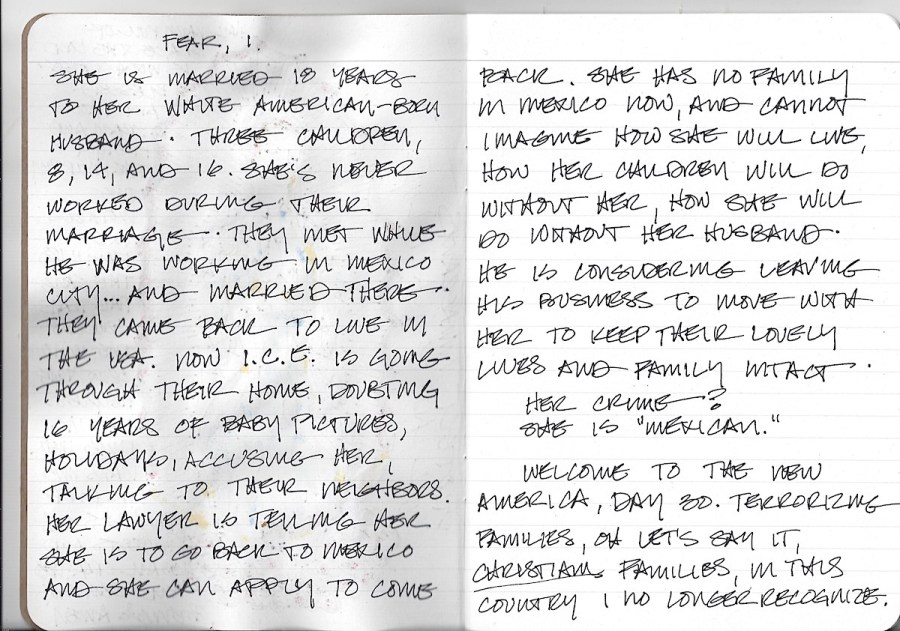 FEAR, 1.
SHE IS MARRIED 18 YEARS
TO HER WHITE AMERICAN-BORN
HUSBAND. THREE CHILDREN,
8, 14, AND 16. SHE'S NEVER
WORKED DURING THEIR
MARRIAGE. THEY MET WHILE
HE WAS WORKING IN MEXICO
CITY... AND MARRIED THERE.
THEY CAME BACK TO LIVE IN
THE USA. NOW I.C.E. IS GOING
THROUGH THEIR HOME, DOUBTING
16 YEARS OF BABY PICTURES,
HOLIDAYS, ACCUSING HER,
TALKING TO THEIR NEIGHBORS.
HER LAWYER IS TELLING HER
SHE IS TO GO BACK TO MEXICO
AND SHE CAN APPLY TO COME
BACK. SHE HAS NO FAMILY
IN MEXICO NOW, AND CANNOT
IMAGINE HOW SHE WILL LIVE,
HOW HER CHILDREN WILL DO
WITHOUT HER, HOW SHE WILL
DO WITHOUT HER HUSBAND.
HE IS CONSIDERING LEAVING
HIS BUSINESS TO MOVE WITH
HER TO KEEP THEIR LOVELY
LIVES AND FAMILY INTACT.
HER CRIME?
SHE IS "MEXICAN."
WELCOME TO THE NEW
AMERICA, DAY 30. TERRORIZING
FAMILIES, OH LET'S SAY IT,
CHRISTIAN FAMILIES, IN THIS
COUNTRY I NO LONGER RECOGNIZE.